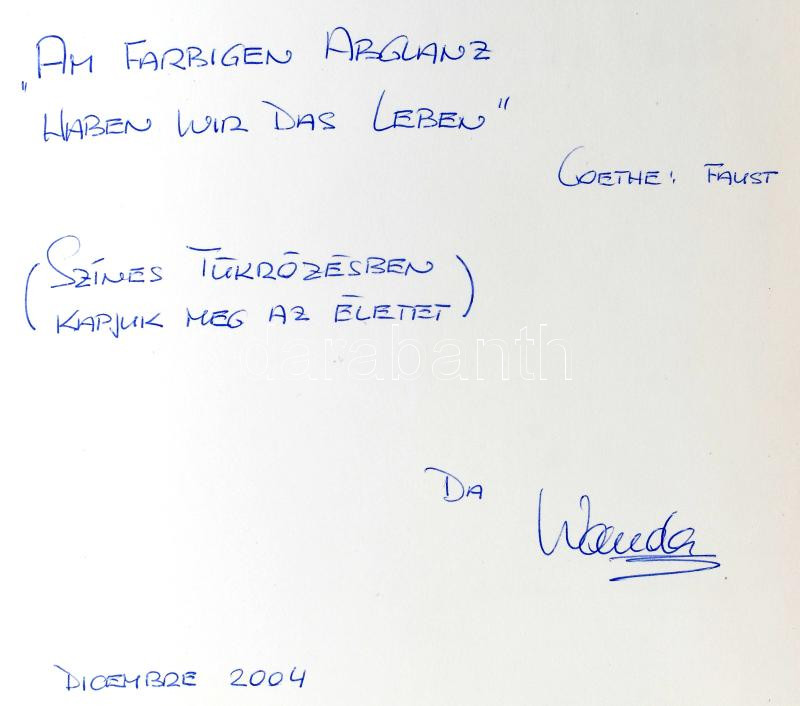 „AM FARBIGEN ABGLANZ
HABEN WIR DAS LEBEN"
GOETHE: FAUST
(SZÍNES TÜKRÖZÉSBEN
KAPJUK MEG AZ ÉLETET)
darabanth
DA Wanda
DICEMBRE 2004